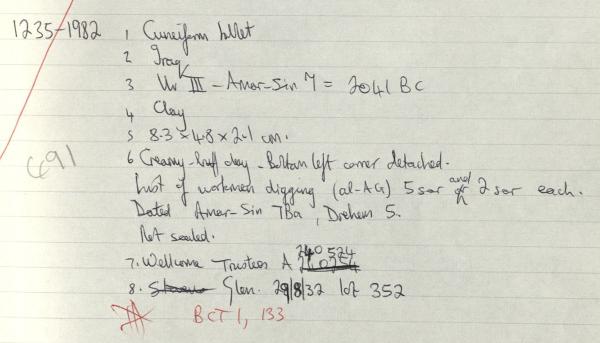 1235-1982 1 Cuneiform tablet
2 Iraq
3 Ur III - Amar-Sin 7 = 2041 BC
4 Clay
5 8.3 × 4.8 × 2.1 cm.
691
6 Creamy-buff clay - Bottom left corner detached.
List of workmen digging (al-AG) 5 sar and 2 sar each.
Dated Amar-Sin 7Ba, Drehem 5.
Not sealed.
7. Wellcome Trustees A 240 524
8. Glen. 29/8/32 lot 352
BCT 1, 133